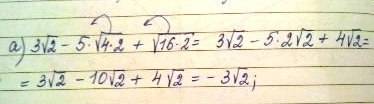 а) 3√2 - 5·√4·2 + √16·2 = 3√2 - 5·2√2 + 4√2 =
= 3√2 - 10√2 + 4√2 = -3√2;